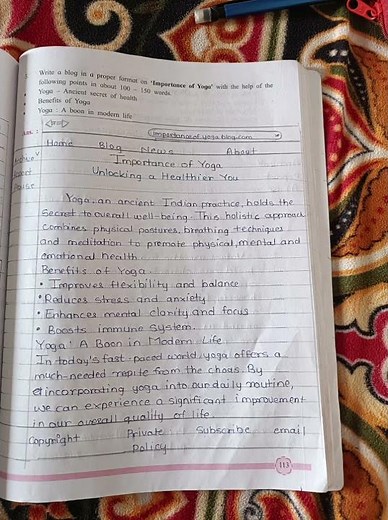 Write a blog in a proper format on 'Importance of Yoga' with the help of the
following points in about 100 – 150 words.
Yoga – Ancient secret of health
Benefits of Yoga
Yoga : A boon in modern life
importance of yoga blog.com
Home Blog News About
Importance of Yoga
Unlocking a Healthier You
Yoga, an ancient Indian practice, holds the
secret to overall well-being. This holistic approach
combines physical postures, breathing techniques
and meditation to promote physical, mental and
emotional health
Benefits of Yoga.
• Improves flexibility and balance
• Reduces stress and anxiety
• Enhances mental clarity and focus
• Boosts immune system.
Yoga : A Boon in Modern Life
In today's fast-paced world, yoga offers a
much-needed repite from the choas. By
incorporating yoga into our daily routine,
we can experience a significant improvement
in our overall quality of life.
Copyright Private subscribe email
Policy
113